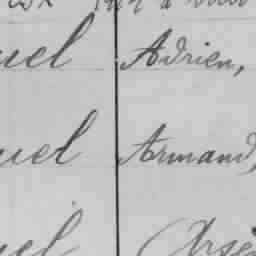 uel Adrien,
uel Armand,
uel Arsè